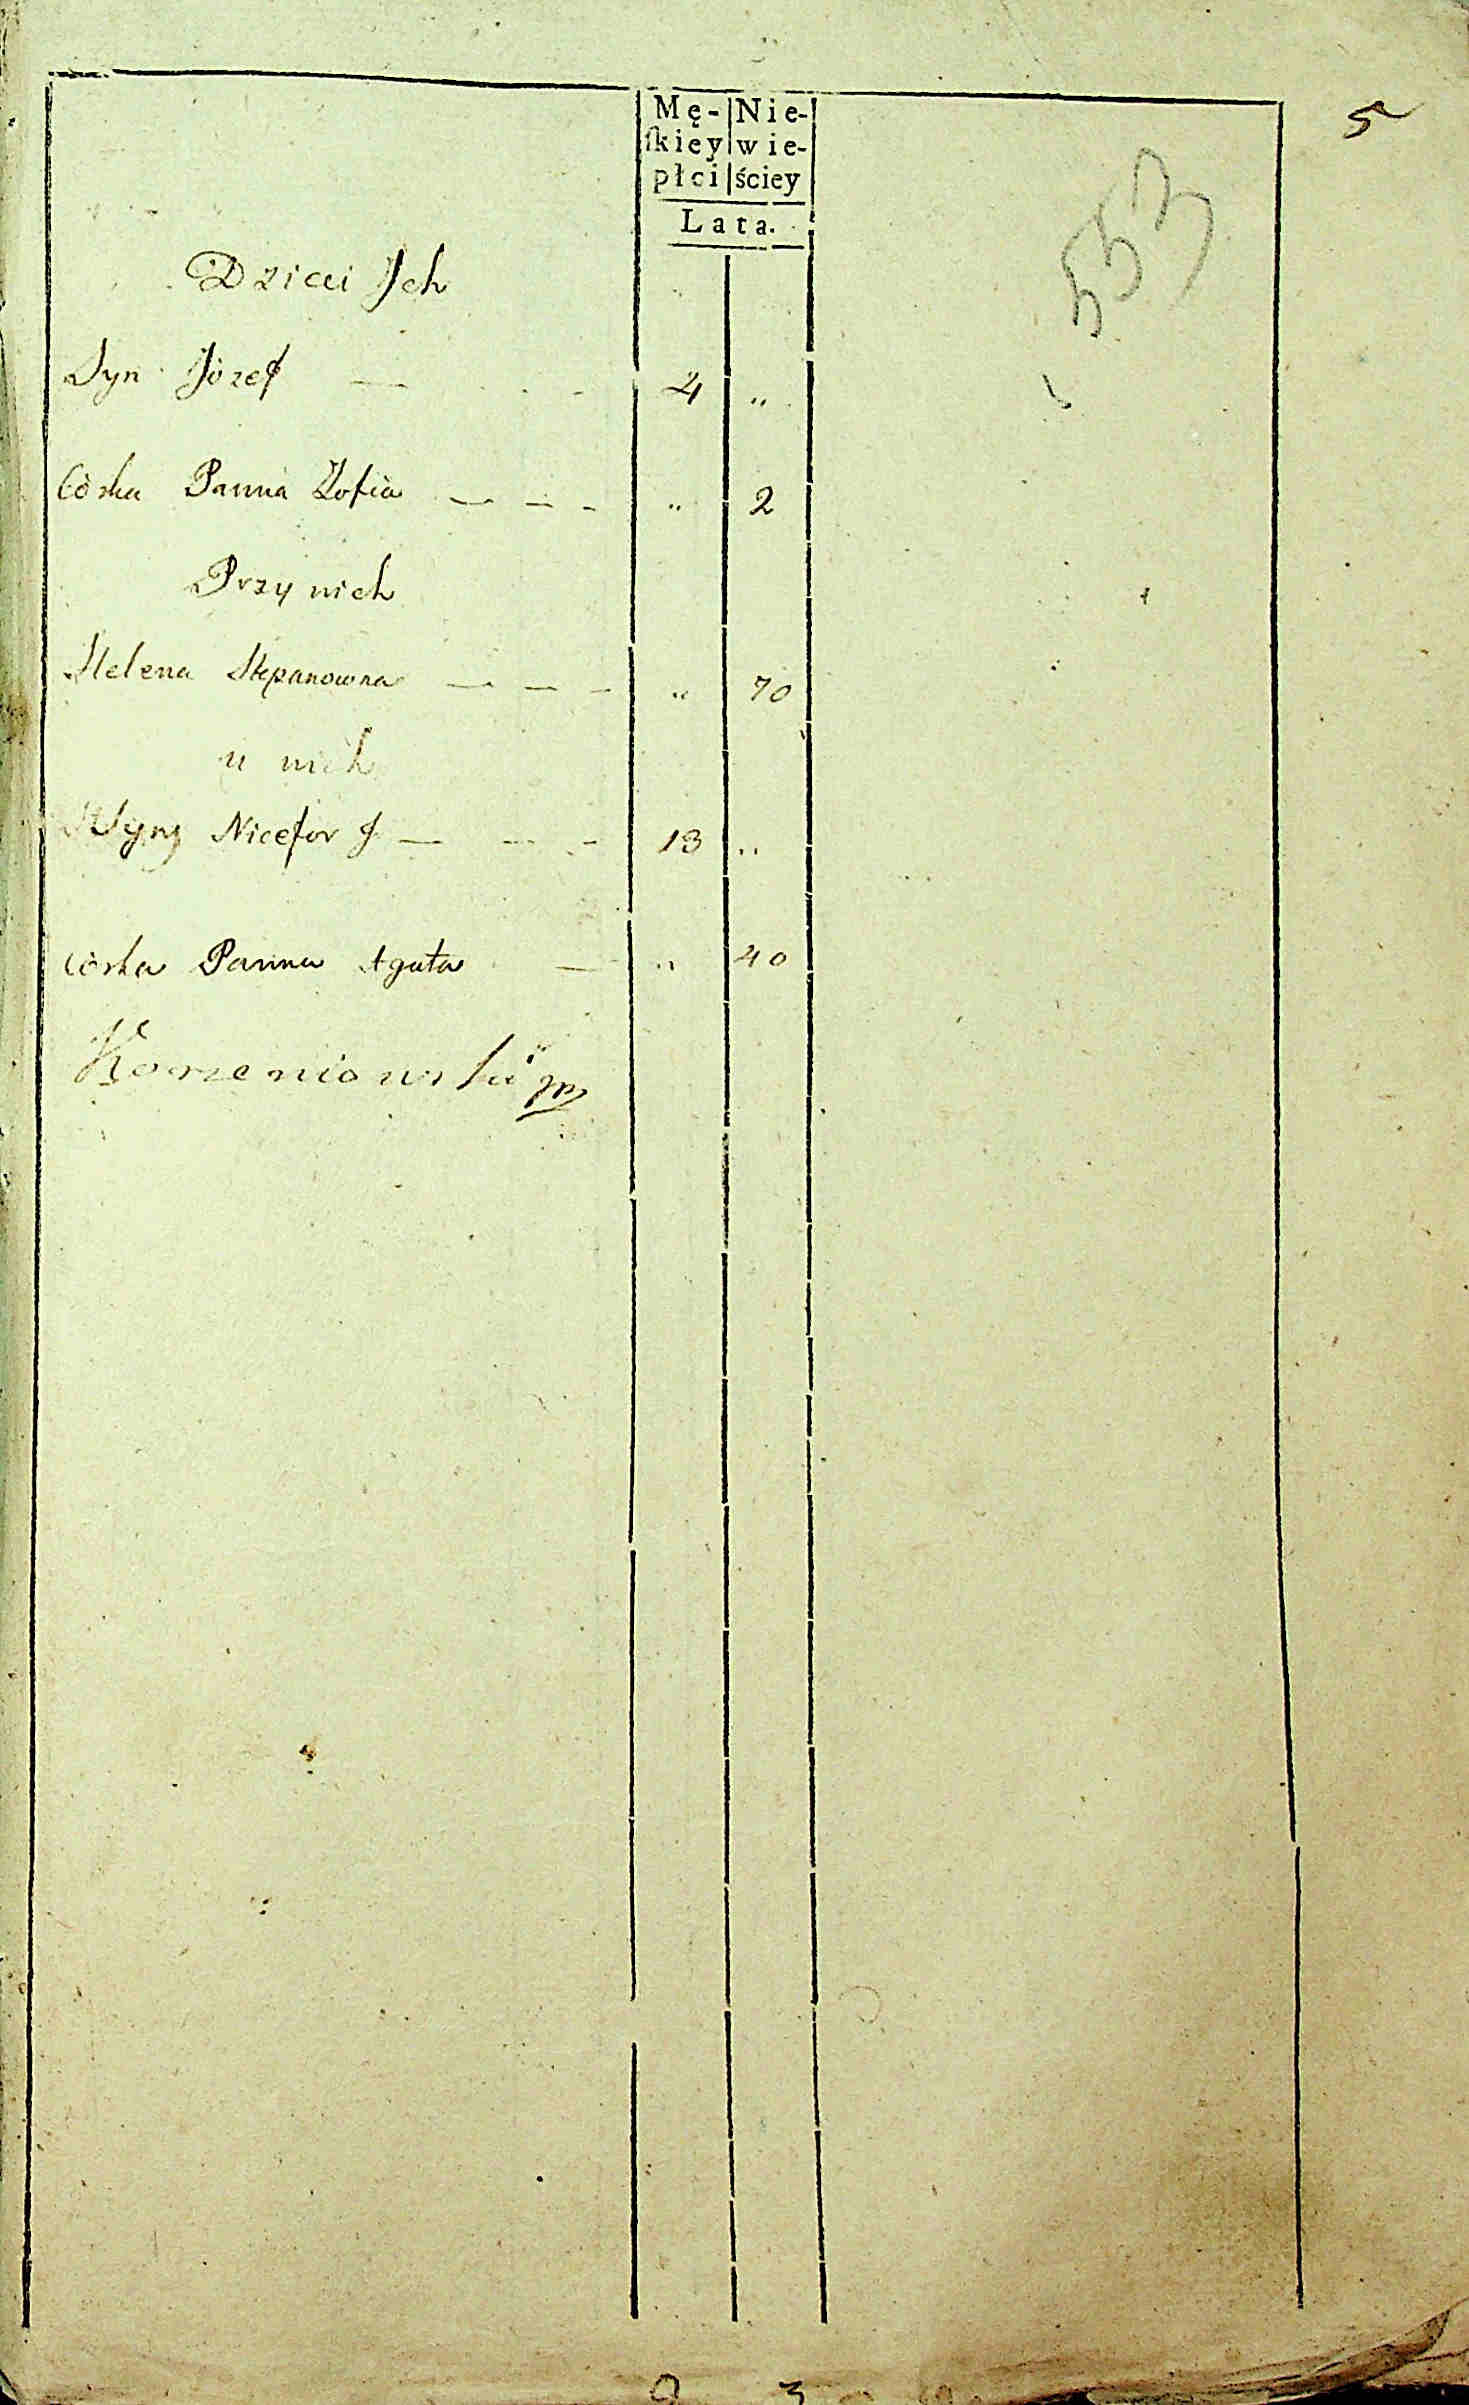 5
Mę- Nie-
ſkiey wie-
płci ściey
Lata.
553
Dzieci Jch
Syn Józef — 4 „
Córka Panna Zofia — — - „ 2
Przy nich
Helena Stepanowna — — - „ 70
u nich
Nicefor — — - 13 „
Córka Panna Agata — „ 40
Korzeniowski